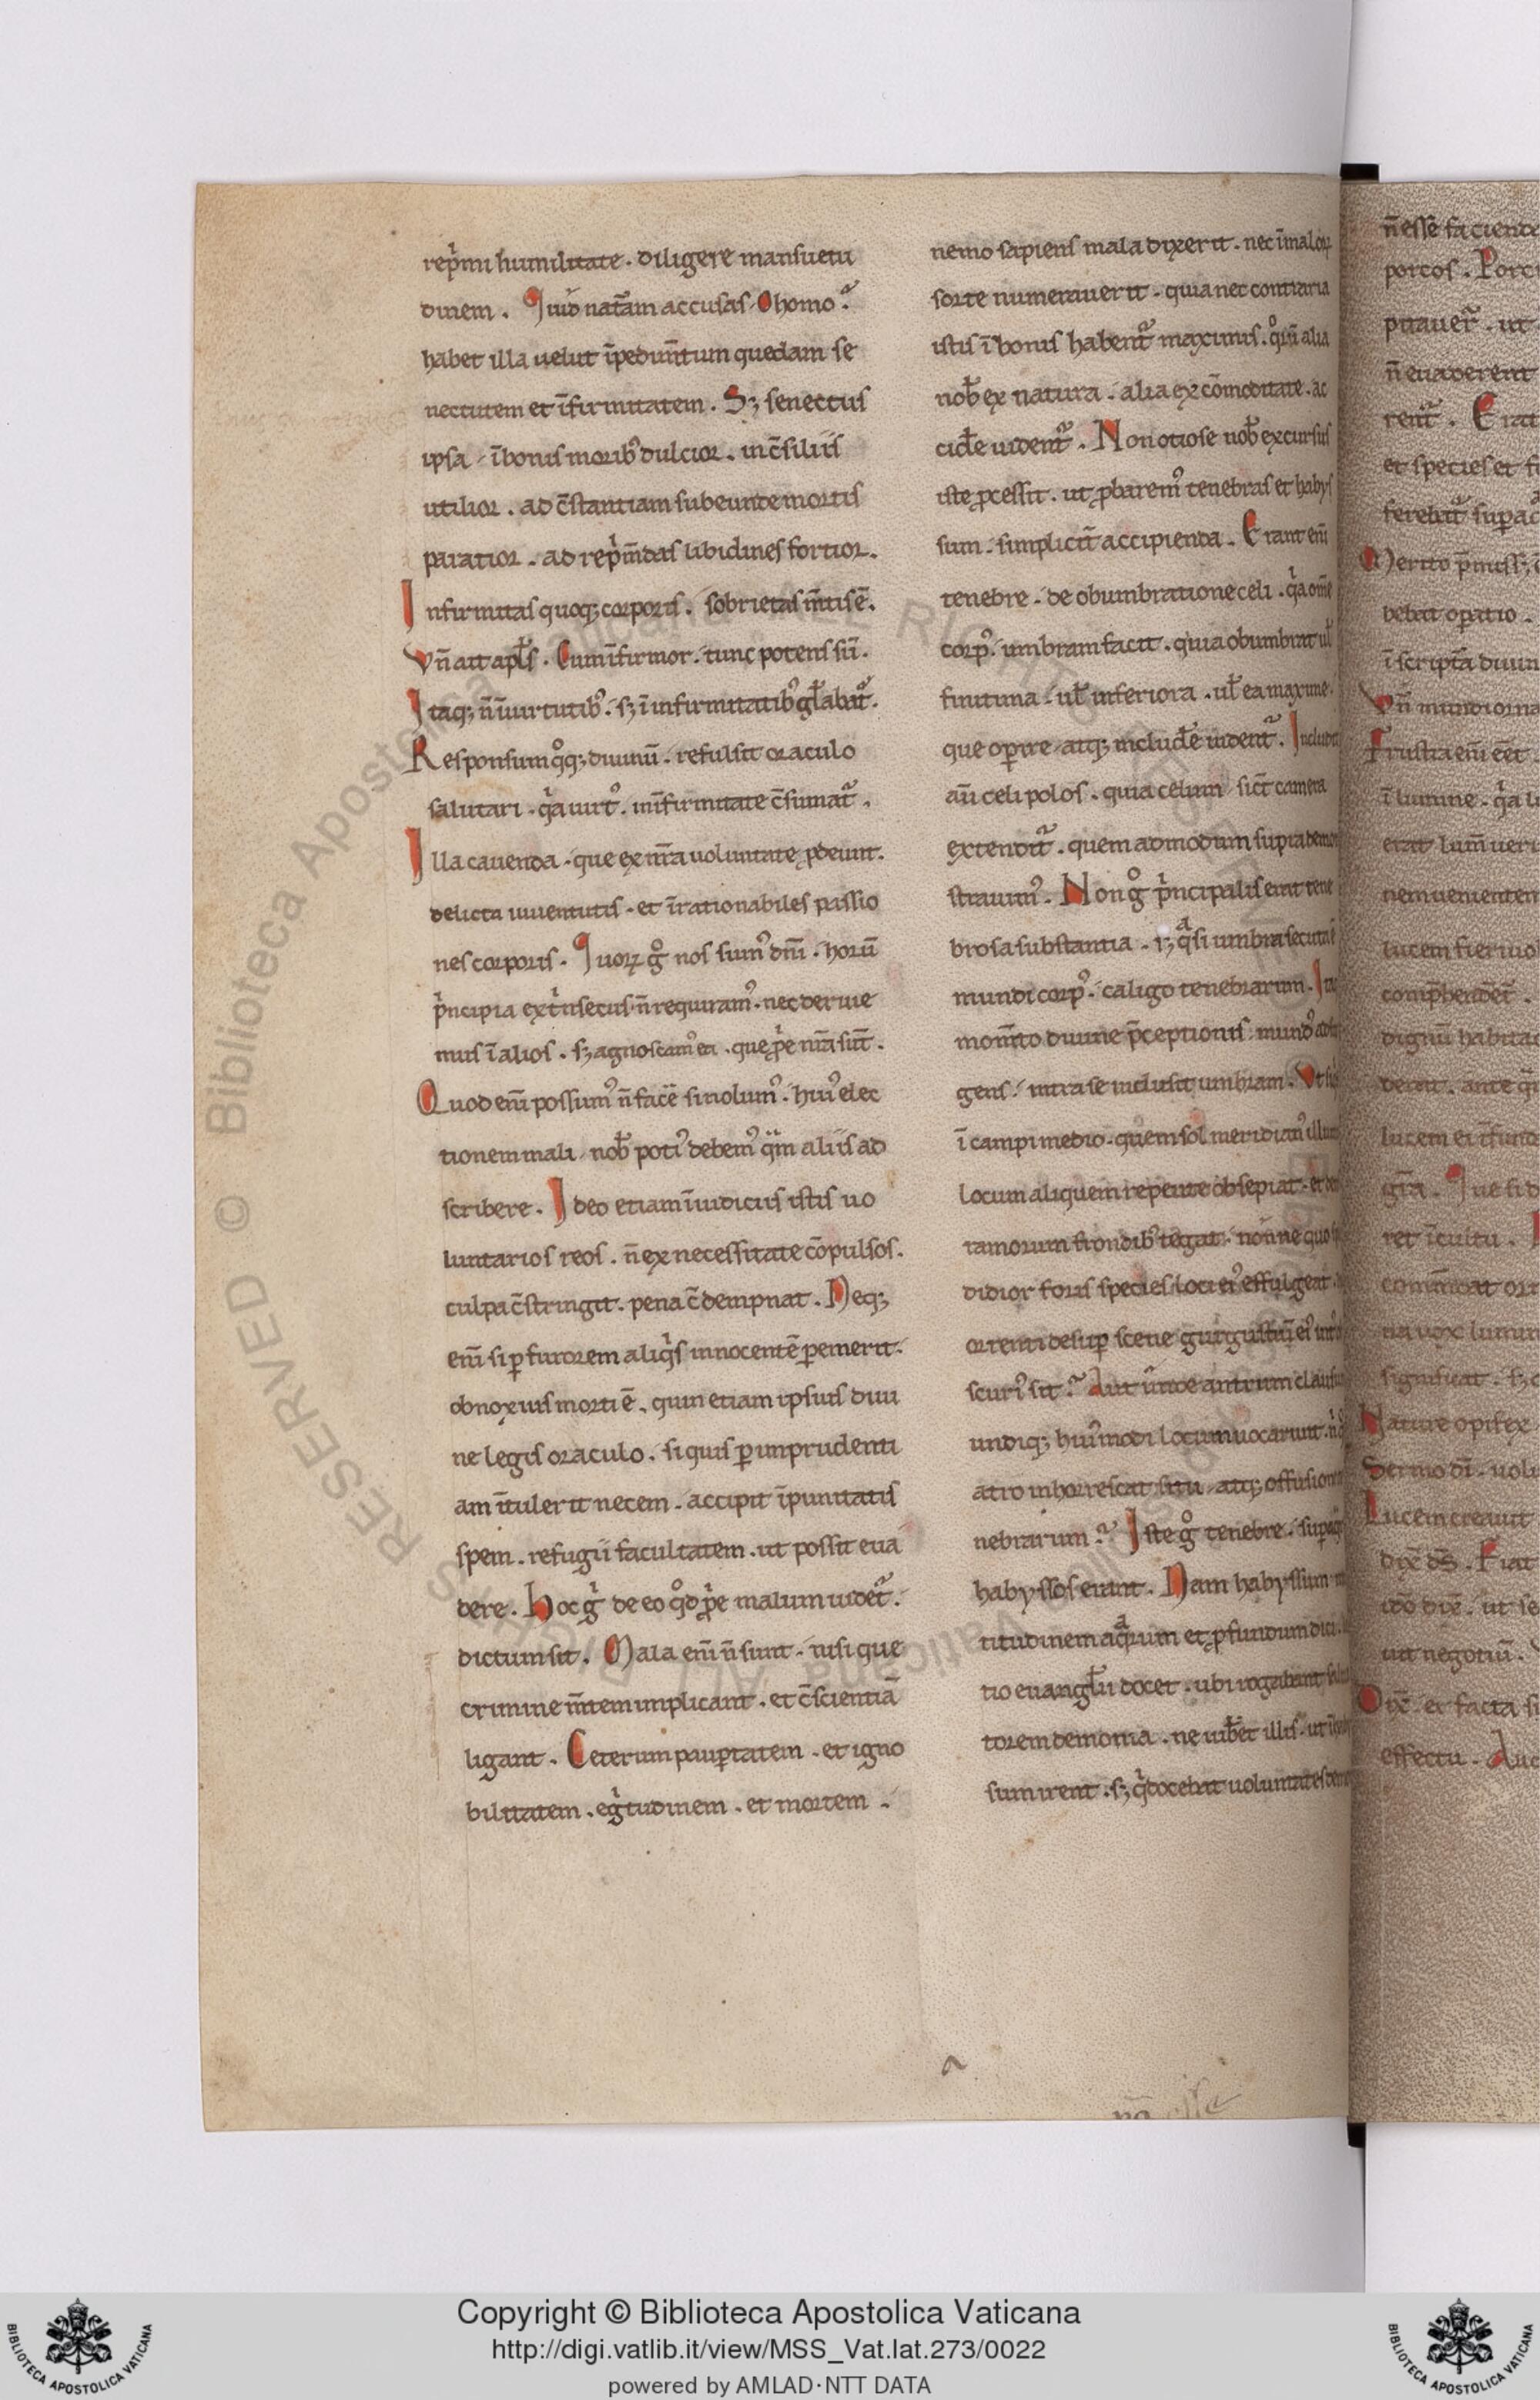 rep̾mi humilitate. diligere mansuetu
dinem. Quid nat̄am accusas. O homo?
habet illa uelut īpedim̄tum quedam se
nectutem et īfirmitatem. Sꝫ senectus
ipsa ībonis morib᾽ dulcior. in c̄siliis
utilior. ad c̄stantiam subeunde mortis
paratior. ad rep̾m̄das libidines fortior.
Infirmitas quoqꝫ corporis. sobrietas m̄tis ē.
Vn̄ ait apl̄s. Cum īfirmor. tunc potens sū.
Itaqꝫ n̄ ī uirtutib᾽. sꝫ ī infirmitatib᾽ gl̄abat᾽.
Responsum q°qꝫ diuinū. refulsit oraculo
salutari. qͥa uirt᾽. in īfirmitate c̄sumat᾽.
Illa cauenda. que ex nr̄a uoluntate ꝓdeunt.
delicta iuuentutis. et īrationabiles passio
nes corporis. Quoꝝ g° nos sum᾽ dn̄i. horū
pͥncipia extͥnsecus n̄ requiram᾽. nec deriue
mus ī alios. sꝫ agnoscam᾽ ea. que ꝓpͥe nr̄a sūt.
Quod eni᷒ possum᾽ n̄ facẽ si nolum᾽. hui᾽ elec
tionem mali nob̄ poti᾽ debem᾽ qͣm aliis ad
scribere. Ideo etiam ī iudiciis istis uo
luntarios reos. n̄ ex necessitate cōpulsos.
culpa c̄stringit. pena c̄dempnat. Neqꝫ
eni᷒ si ꝑ furorem aliqͥs innocentē ꝑemerit.
obnoxius morti ē. quin etiam ipsius diui
ne legis oraculo. si quis ꝑ imprudenti
am ītulerit necem. accipit īpunitatis
spem. refugii facultatem. ut possit eua
dere. Hoc gͥ de eo qd° ꝓpͥe malum uidet᾽.
dictum sit. Mala eni᷒ n̄ sunt. nisi que
crimine m̄tem implicant. et c̄scientiā
ligant. Ceterum pauꝑtatem. et igno
bilitatem. egͥtudinem. et mortem.
nemo sapiens mala dixerit. nec ī maloꝝ
sorte numerauerit. quia nec contraria
istis ī bonis habent᾽ maximis. q°ꝝ alia
nob̄ ex natura. alia ex cōmoditate. ac
cid̄e uident᾽. Non otiose nob̄ excursus
iste ꝓcessit. ut ꝓbarem᾽ tenebras et habys
sum. simplicit̄ accipienda. Erant eni᷒
tenebre. de obumbratione celi. qͥa om̄e
corp᾽. umbram facit. quia obumbrat ul̄
finitima. ul̄ inferiora. ul̄ ea maxime.
que oꝑire atqꝫ includ̄e uident᾽. Includit
au᷒ celi polos. quia celum sic̄t camera
extendit᾽. quem admodum supra demon
strauim᾽. Non g° pͥncipalis erat tene
brosa substantia. sꝫ qͣsi umbra secuta ē
mundi corp᾽. caligo tenebrarum.
mom̄to diuine p̄ceptionis. mund᾽
gens. intra se inclusit umbram. Vt
ī campi medio. quem sol meridian᾽
locum aliquem repente obsepiat.
ramorum frondib᾽ tegat. nonne quo
didior foris species loci ei᾽ effulgeat.
orrenti desuꝑ scene gurgustiū ei᾽
scuri᾽ sit? Aut unde antrum
undiqꝫ hui᾽modi locum uocarunt.
atro inhorrescat situ atqꝫ offusione
nebrarum? Iste g° tenebre. suꝑ
habyssos erant. Nam habyssum
titudinem aqͣrum et ꝓfundum dici.
tio euangl̄ii docet. ubi rogabant
torem demonia. ne iub̄et illis. ut
sum irent. sꝫ qͥ docebat uoluntates
a
n̄ esse faciende
porcos. Porc
putauer̄. ut
n̄ euaderent
rent᾽. Erat
et species et
ferebat᾽ suꝑ
Merito p̄miss
debita oꝑatio.
ī scriptͣ diuin
Vn̄ mundi orna
Frustra eni᷒ eēt
ī lumine. qͥa
erat lum̄ ueri
nem uenientem
lucem fieri uol
comp̄hendēt.
dignū habita
derit. ante
lucem ei īfund
gr̄a. Qui
ret īcultu.
comm̄eat
na uox lumin
significat. sꝫ
Nature opifex
Sermo di᷒. uol
Lucem creauit
dix̄ ds̄. Fiat
ido dix̄. ut se
uit negotiū.
Dix̄. et facta
effectu. Auc
Copyright © Biblioteca Apostolica Vaticana
http://digi.vatlib.it/view/MSS_Vat.lat.273/0022
powered by AMLAD·NTT DATA